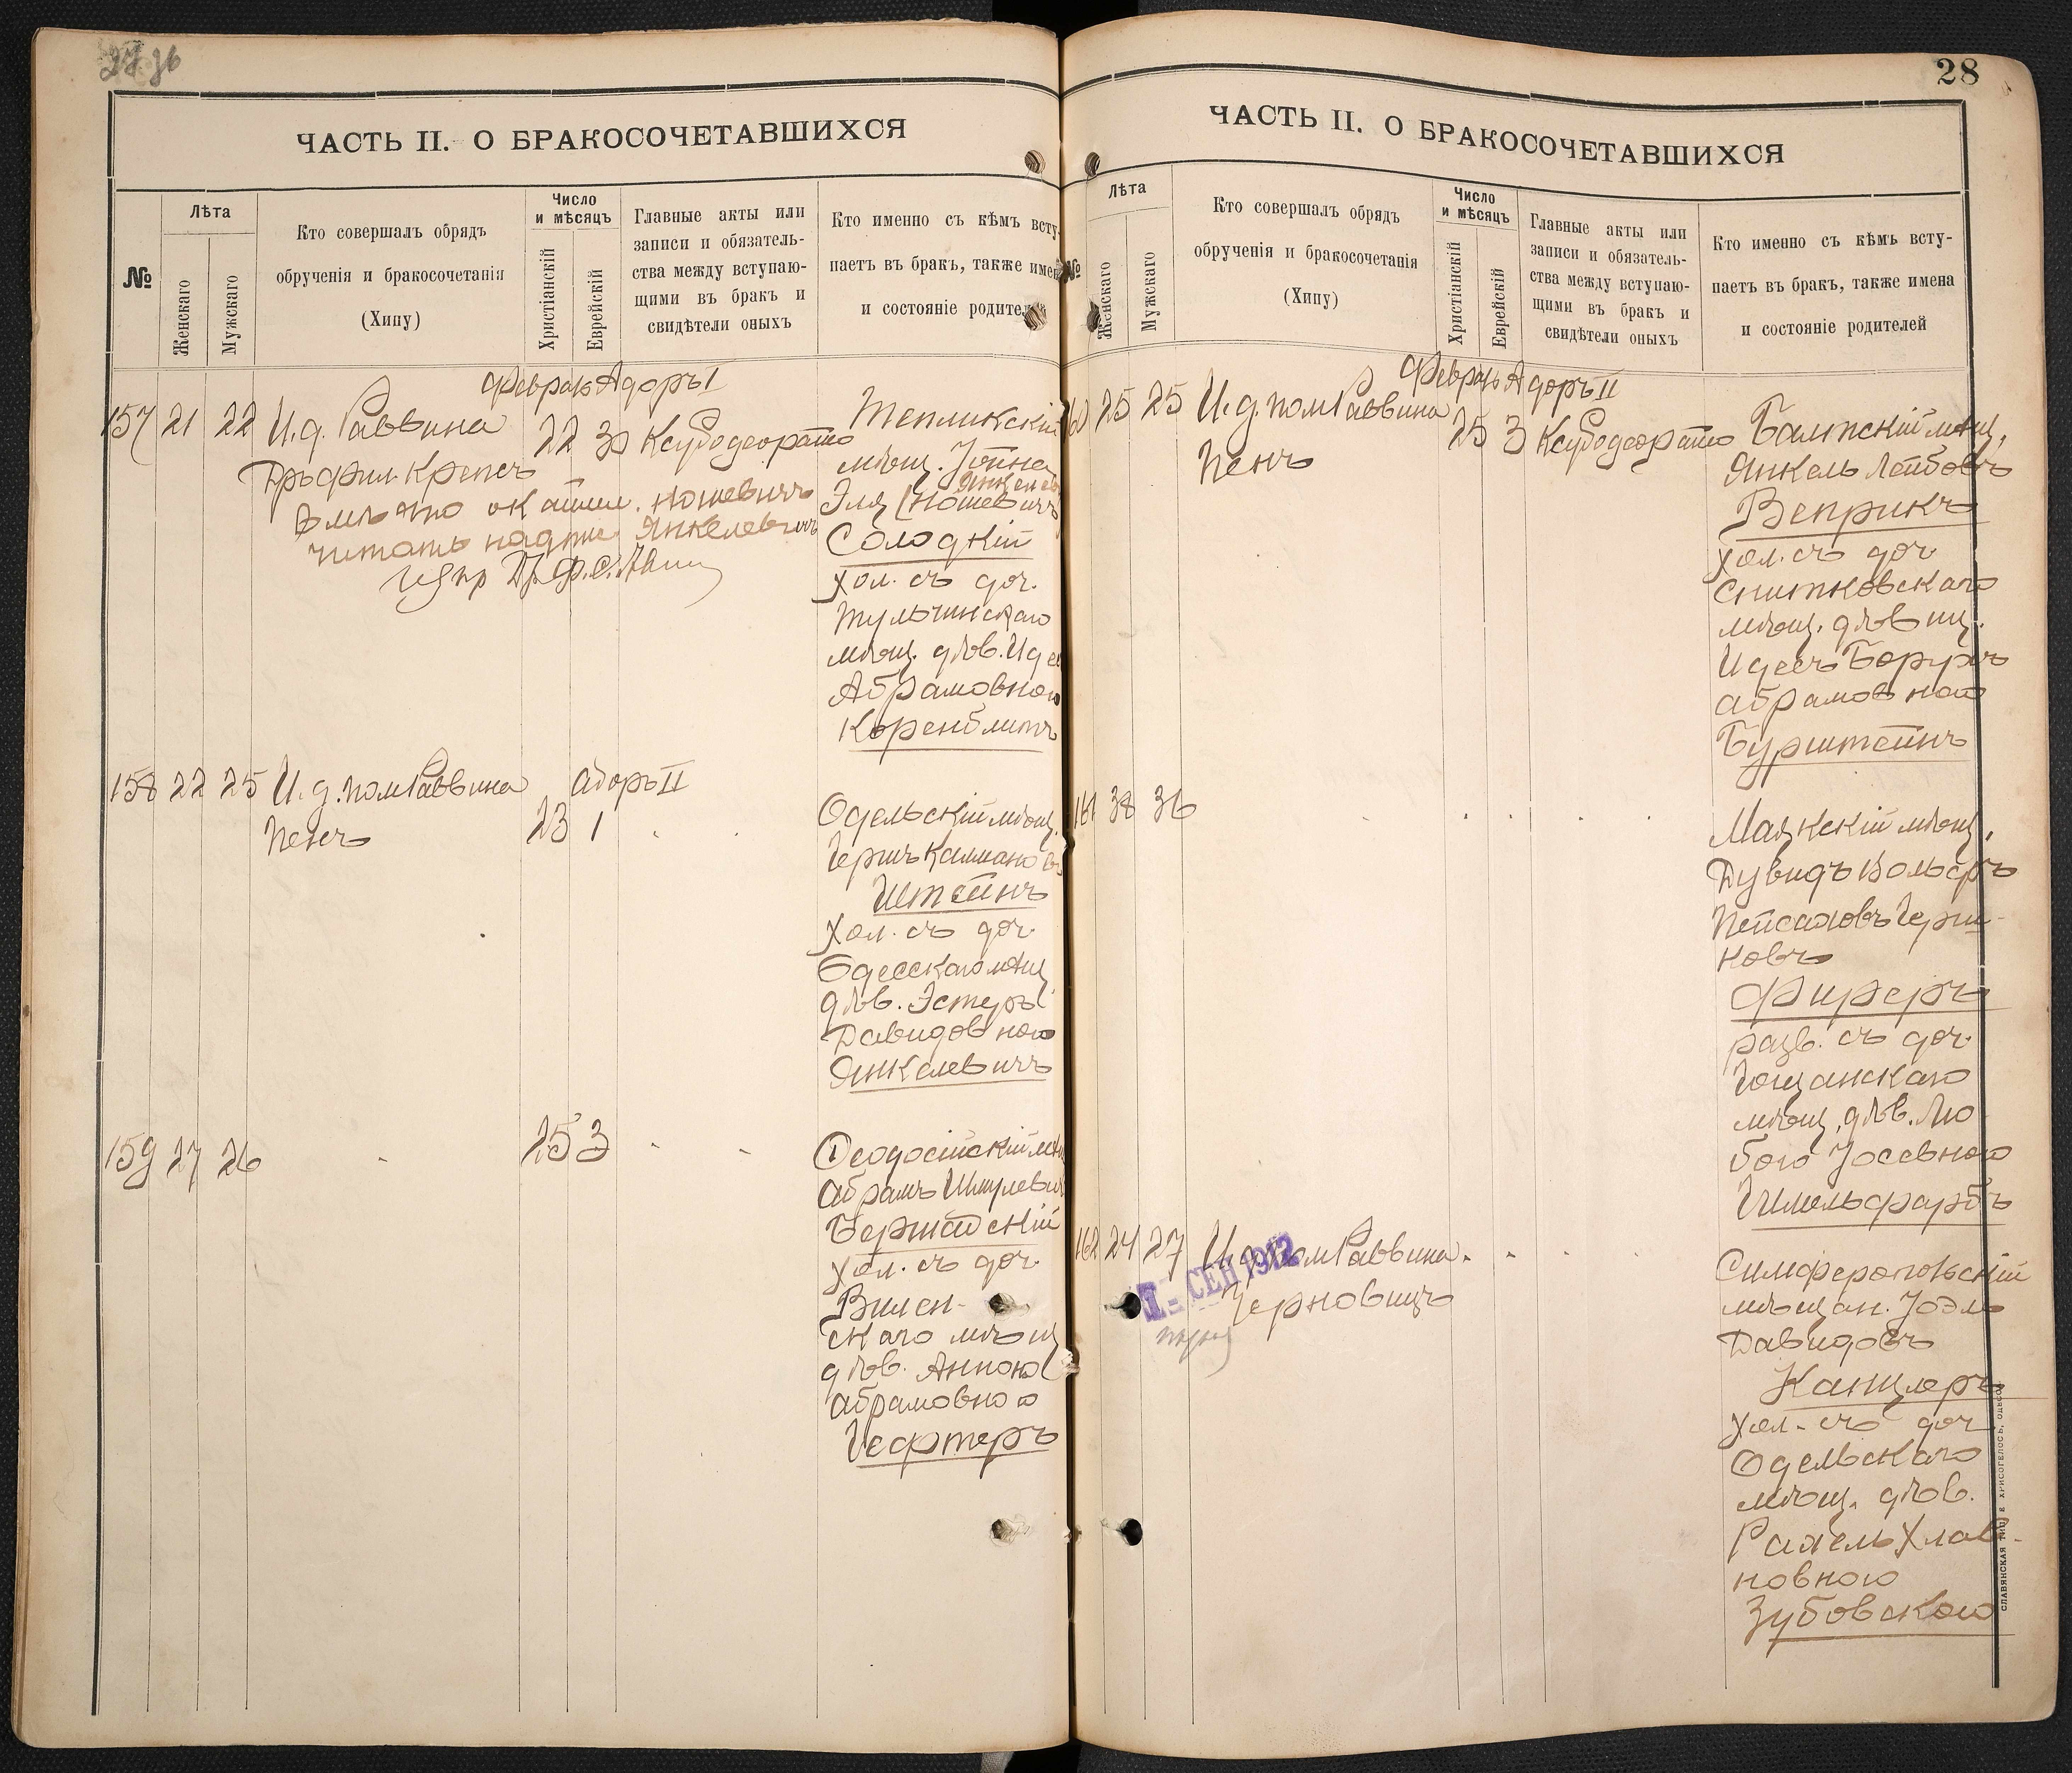 ЧАСТЬ II. О БРАКОСОЧЕТАВШИХСЯ
№
Лѣта
Женскаго
Мужскаго
Кто совершалъ обрядъ
обрученія и бракосочетанія
(Хипу)
Число
и мѣсяцъ
Христіанскій
Еврейскій
Главные акты или
записи и обязатель-
ства между вступаю-
щими въ бракъ и
свидѣтели оныхъ
Кто именно съ кѣмъ всту-
паетъ въ бракъ, также имен
и состояніе родите
Февраль Адоръ I
157 21 22 И. д. Раввина
22 30 Ксубодеорайто
Тепликскій
мѣщ. Іойна
Янкелев
Эля (Ношевичъ
Солодкій
хол. съ доч.
Тульчинскаго
мѣщ. дѣв. Идес
Абрамовною
Коренблитъ
Дръ фил. Крепсъ
читать Янкелевичъ
158 22 25 И. д. пом Раввина
Пенъ
Адоръ II
23 1
Одельскій мѣщ.
Гершъ Калманов
Штейнъ
Хол. съ доч.
Одесскаго мѣщ
дѣв. Эстеры
Давидовною
Янкелевичъ
159 27 26
25 3
Ѳеодосійскій мѣщ
Абрамъ Шмулевич
хол. съ доч.
Вилен-
скаго мѣщ
дѣв. Анною
Абрамовною
Гефтеръ
28
ЧАСТЬ II. О БРАКОСОЧЕТАВШИХСЯ
№
Лѣта
Женскаго
Мужскаго
Кто совершалъ обрядъ
обрученія и бракосочетанія
(Хипу)
Число
и мѣсяцъ
Христіанскій
Еврейскій
Главные акты или
записи и обязатель-
ства между вступаю-
щими въ бракъ и
свидѣтели оныхъ
Кто именно съ кѣмъ всту-
паетъ въ бракъ, также имена
и состояніе родителей
Февраль Адоръ II
25 25 И. д. пом Раввина
Пенъ
25 3 Ксубодеорайто
Балтскій мѣщ.
Янкель Лейбовъ
Веприкъ
хол. съ доч
Снитковскаго
мѣщ. дѣвиц.
Идесъ Борухъ
Абрамовною
Бурштейнъ
161 38 36
Маякскій мѣщ.
Дувидъ Вольфъ
Пейсаховъ Герш-
ковъ
Фиреръ
разв. съ доч.
Гощанскаго
мѣщ. дѣв. Лю
бою Іосевною
162 24 27 И. д. пом Раввина
Черновицъ
СЕН 1912
Симферопольскій
мѣщан. Іоэль
Давидовъ
Канцлеръ
Хол. съ доч
Одельскаго
мѣщ. дѣв.
Рахель Хлав-
новною
Зубовскою
СЛАВЯНСКАЯ ТИП. Е. ХРИСОГЕЛОСЪ, ОДЕССА